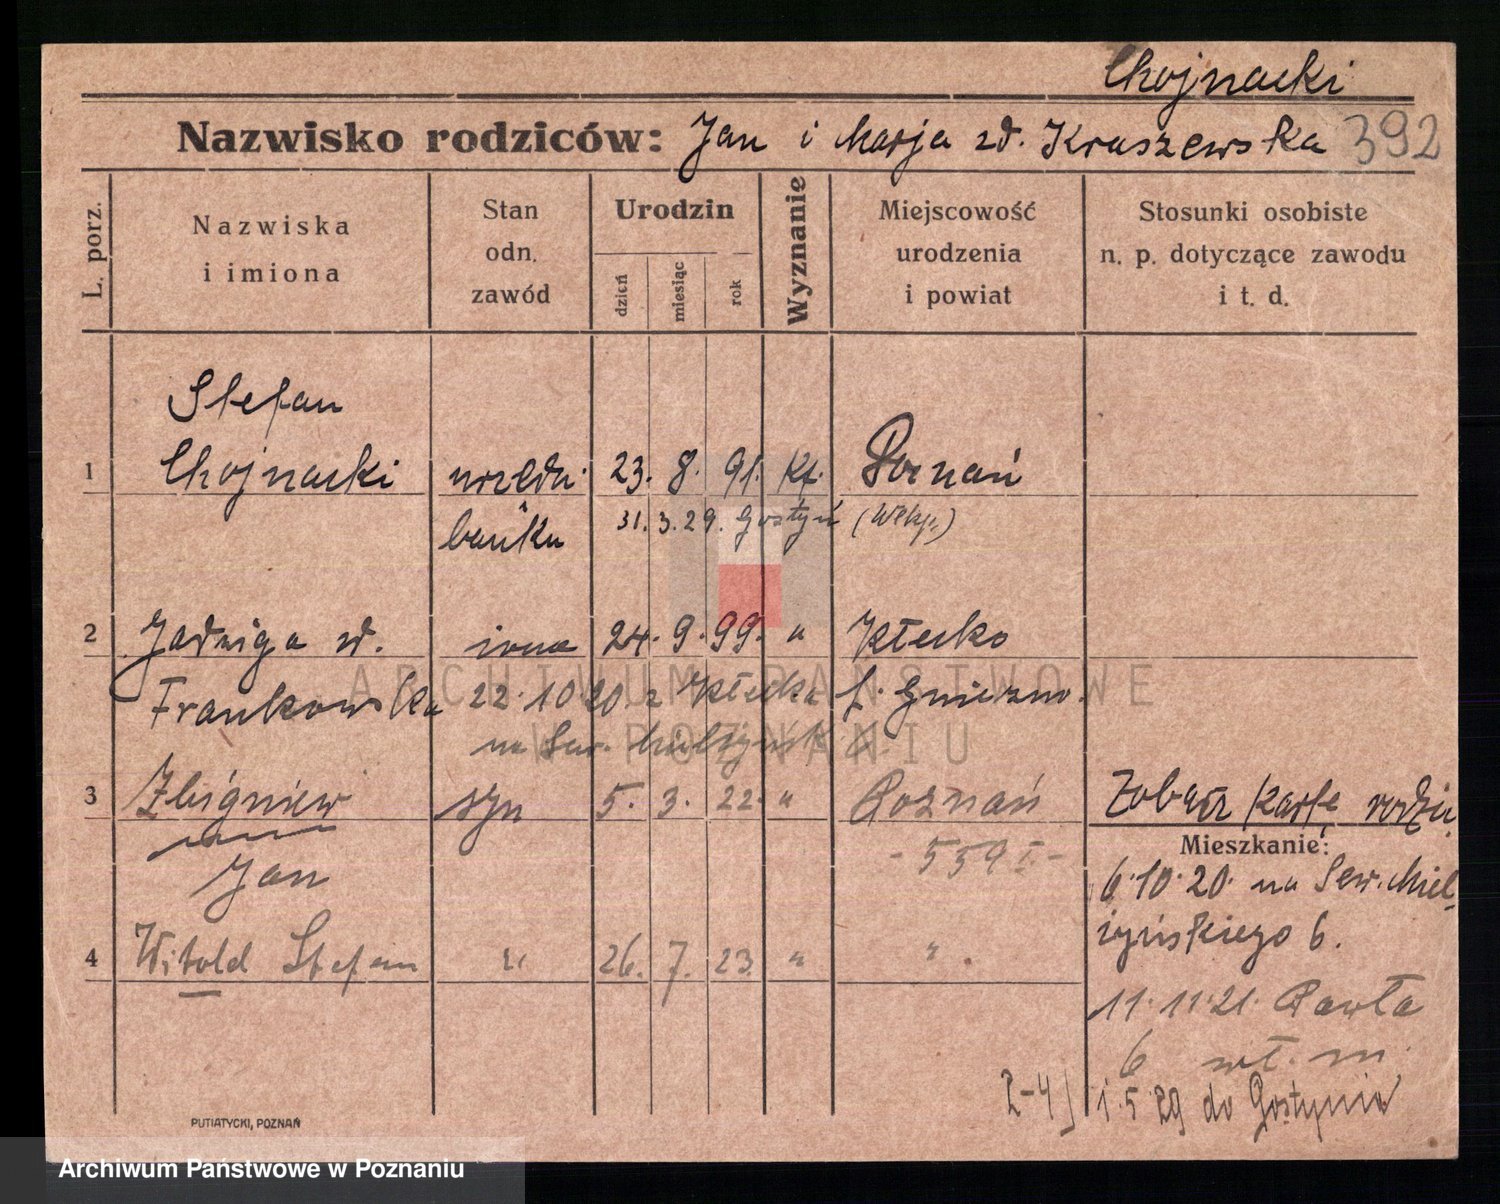 Chojnacki
Nazwisko rodziców: Jan i Marja zd. Kraszewska 392
L. porz.
Nazwiska
i imiona
Stan
odn.
zawód
Urodzin
dzień
miesiąc
rok
Wyznanie
Miejscowość
urodzenia
i powiat
Stosunki osobiste
n. p. dotyczące zawodu
i t. d.
Stefan
1 Chojnacki urzędn. 23. 8. 91. kt. Poznań
banku 31. 3. 29. Gostyń (Wlkp.)
2 Jadwiga zd. żona 24. 9. 99. " Kłecko
Frankowska 22.10.20 z Kłecka p. Gniezno.
na Sew. Mielżyńsk. 6.
3 Zbigniew syn 5. 3. 22. " Poznań Zobacz kartę rodzic.
Jan - 559 I -
Mieszkanie:
6.10.20. na Sew. Miel-
żyńskiego 6.
4 Witold Stefan " 26. 7. 23. " "
11.11.21. Pawła
6 wł. m.
2-4] 1.5.29 do Gostynia
PUTIATYCKI, POZNAŃ
ARCHIWUM PAŃSTWOWE
W POZNANIU
Archiwum Państwowe w Poznaniu